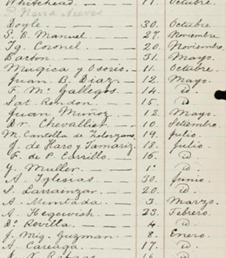 Whitehead — 17. Octubre.
Doyle — 30. Octubre
S. C. Manuel. — 27. Noviembre
Tg. Coronel — 20. Noviembre.
Barton — 31. Mayo
Murgica y Osorio. — 11. Octubre.
Juan B. Diaz. — 12. Mayo.
F. Mª Gallegos — 14. d.
Sat. Rondon — 15. d.
Juan Muñoz — 12. Mayo
Dr. Chevallier — 10. Setiembre.
M. Cantolla de Zolorzano — 19. Julio
J. de Haro y Tamariz — 18. Julio.
F. de P. Carrillo — 16. d.
G. Muller — 1º d.
Iglesias — 30. Junio
S. Larrainzar — 20. d.
A. Muntada — 3. Marzo.
A. Hegewish — 23. Febrero.
Rovilla — 4. d.
J. Mig. Guzman — 8. Enero.
A. Careaga — 17. d.
16. d.